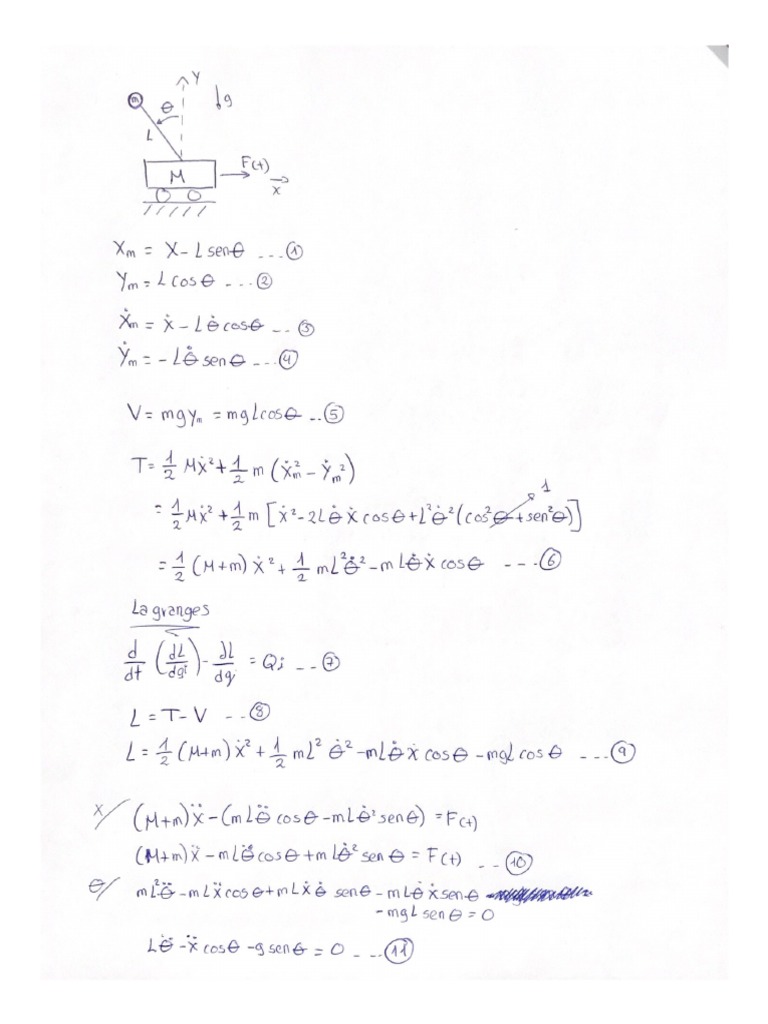 Y
m θ ↓g
L
M F(t)
x
Xm = X - L senθ ---①
Ym = L cosθ ---②
Ẋm = Ẋ - Lθ̇ cosθ --③
Ẏm = - Lθ̇ senθ ---④
V = mgym = mgLcosθ --⑤
T = 1/2 MẊ² + 1/2 m (Ẋm² - Ẏm²)
= 1/2 MẊ² + 1/2 m [Ẋ² - 2Lθ̇Ẋ cosθ + L²θ̇² (cos²θ + sen²θ)] 1
= 1/2 (M+m) Ẋ² + 1/2 mL²θ̇² - mLθ̇Ẋ cosθ ---⑥
Lagranges
d/dt (dL/dq̇i) - dL/dqi = Qi --⑦
L = T - V --⑧
L = 1/2 (M+m) Ẋ² + 1/2 mL² θ̇² - mLθ̇Ẋ cosθ - mgL cosθ ---⑨
X/ (M+m)Ẍ - (mLθ̈ cosθ - mLθ̇² senθ) = F(t)
(M+m)Ẍ - mLθ̈ cosθ + mLθ̇² senθ = F(t) --⑩
θ/ mL²θ̈ - mLẌ cosθ + mLẊθ̇ senθ - mLθ̇Ẋ senθ
- mgL senθ = 0
Lθ̈ - Ẍ cosθ - g senθ = 0 ---⑪